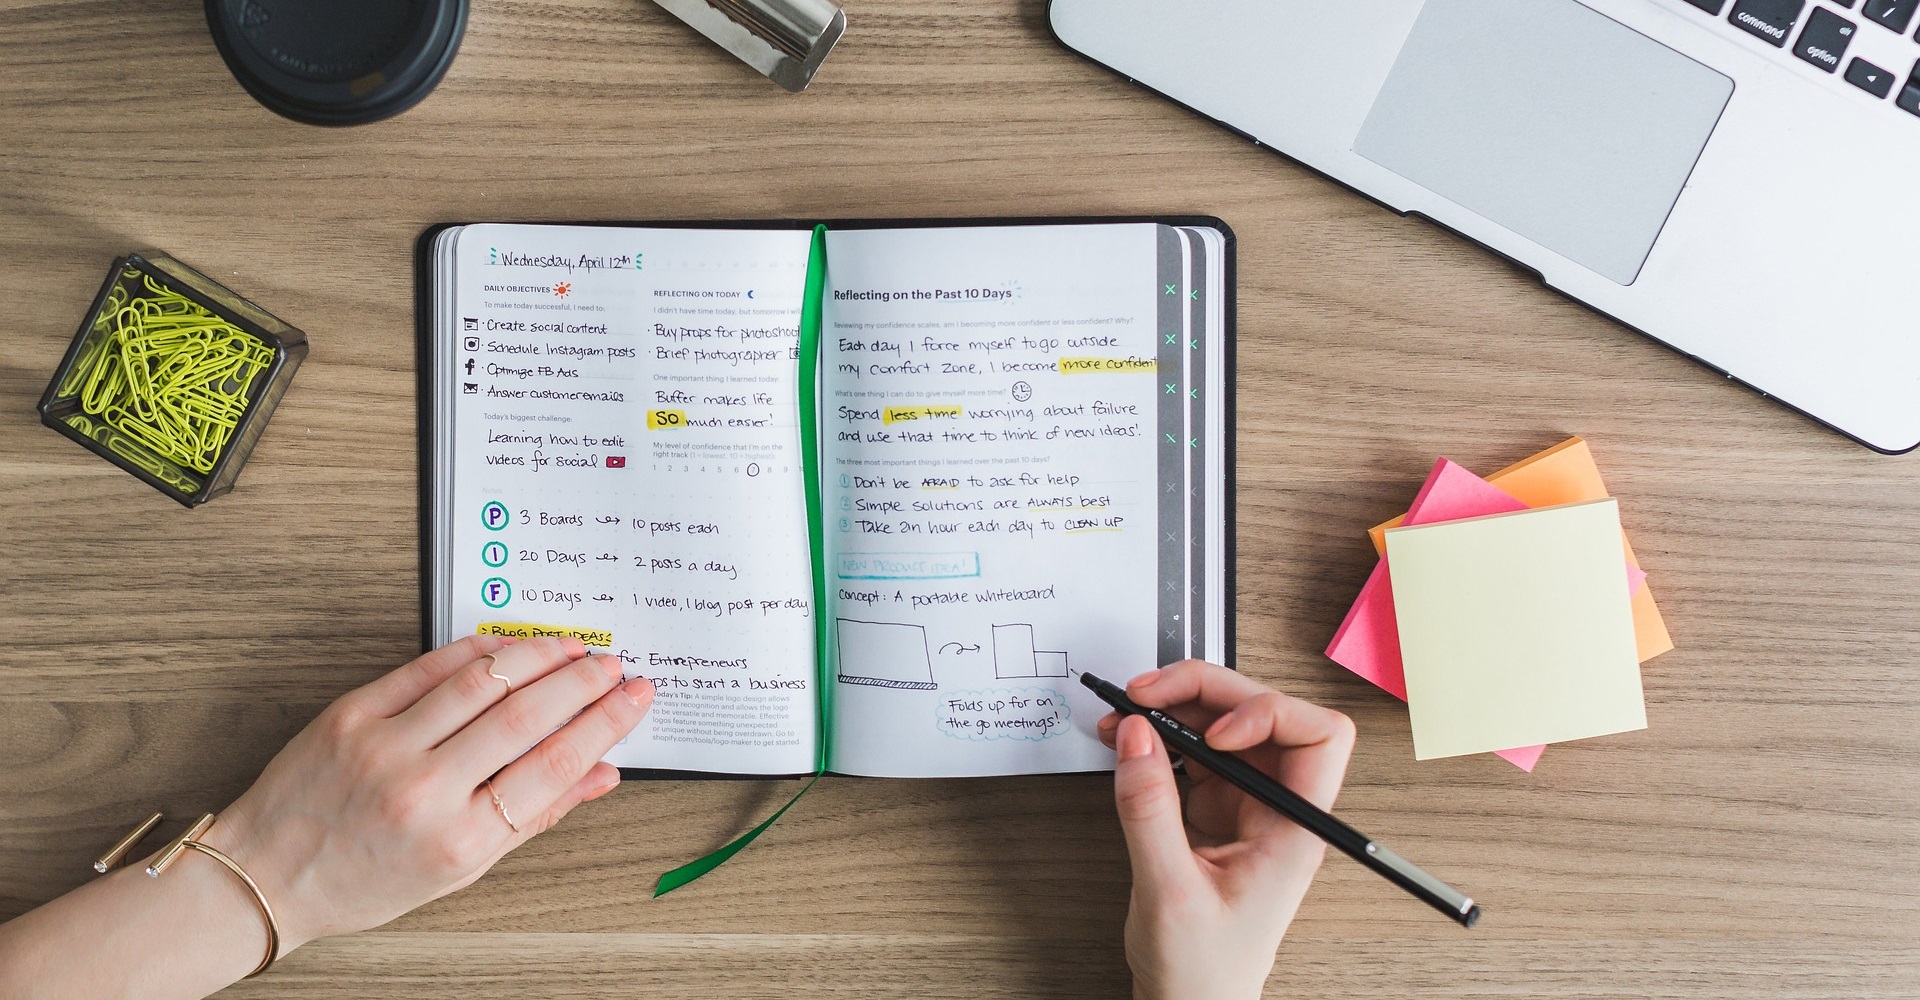 command
alt
option
Wednesday, April 12th
DAILY OBJECTIVES
To make today successful, I need to:
· Create social content
· Schedule Instagram posts
· Optimize FB Ads
· Answer customer emails
Today's biggest challenge:
Learning how to edit
videos for social
REFLECTING ON TODAY
I didn't have time today, but tomorrow I will
· Buy props for photoshoot
· Brief photographer
One important thing I learned today:
Buffer makes life
SO much easier!
My level of confidence that I'm on the
right track (1 = lowest, 10 = highest):
1 2 3 4 5 6 7 8 9
Notes
P 3 Boards 10 posts each
I 20 Days 2 posts a day
F 10 Days 1 video, 1 blog post per day
BLOG POST IDEAS
for Entrepreneurs
to start a business
Today's Tip: A simple logo design allows
for easy recognition and allows the logo
to be versatile and memorable. Effective
logos feature something unexpected
or unique without being overdrawn. Go to
shopify.com/tools/logo-maker to get started
Reflecting on the Past 10 Days
Reviewing my confidence scales, am I becoming more confident or less confident? Why?
Each day I force myself to go outside
my comfort zone, I become more confident
What's one thing I can do to give myself more time?
Spend less time worrying about failure
and use that time to think of new ideas!
The three most important things I learned over the past 10 days?
1 Don't be AFRAID to ask for help
2 Simple solutions are ALWAYS best
3 Take an hour each day to CLEAN UP
NEW PRODUCT IDEA!
Concept: A portable whiteboard
Folds up for on
the go meetings!